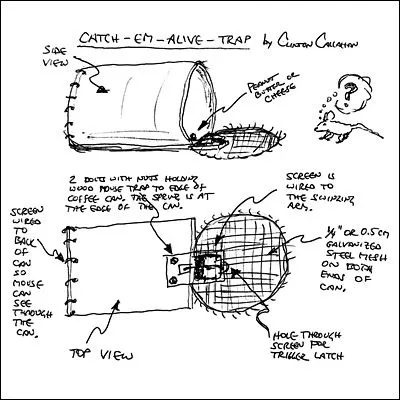 CATCH-EM-ALIVE-TRAP by CLINTON CALLAHAN
SIDE
VIEW
PEANUT
BUTTER OR
CHEESE
?
2 BOLTS WITH NUTS HOLDING
WOOD MOUSE TRAP TO EDGE OF
COFFEE CAN. THE SPRING IS AT
THE EDGE OF THE CAN.
SCREEN IS
WIRED TO THE
THE SWINGING
ARM.
SCREEN
WIRED
TO
BACK
OF
CAN
SO
MOUSE
CAN
SEE
THROUGH
THE
CAN.
1/4" OR 0.5cm
GALVANIZED
STEEL MESH
ON BOTH
ENDS OF
CAN.
TOP VIEW
HOLE THROUGH
SCREEN FOR
TRIGGER LATCH